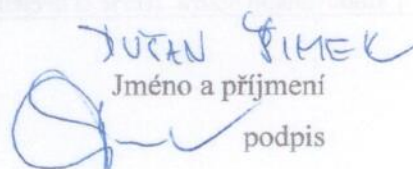 DUŠAN ŠIMEK
Jméno a příjmení
podpis